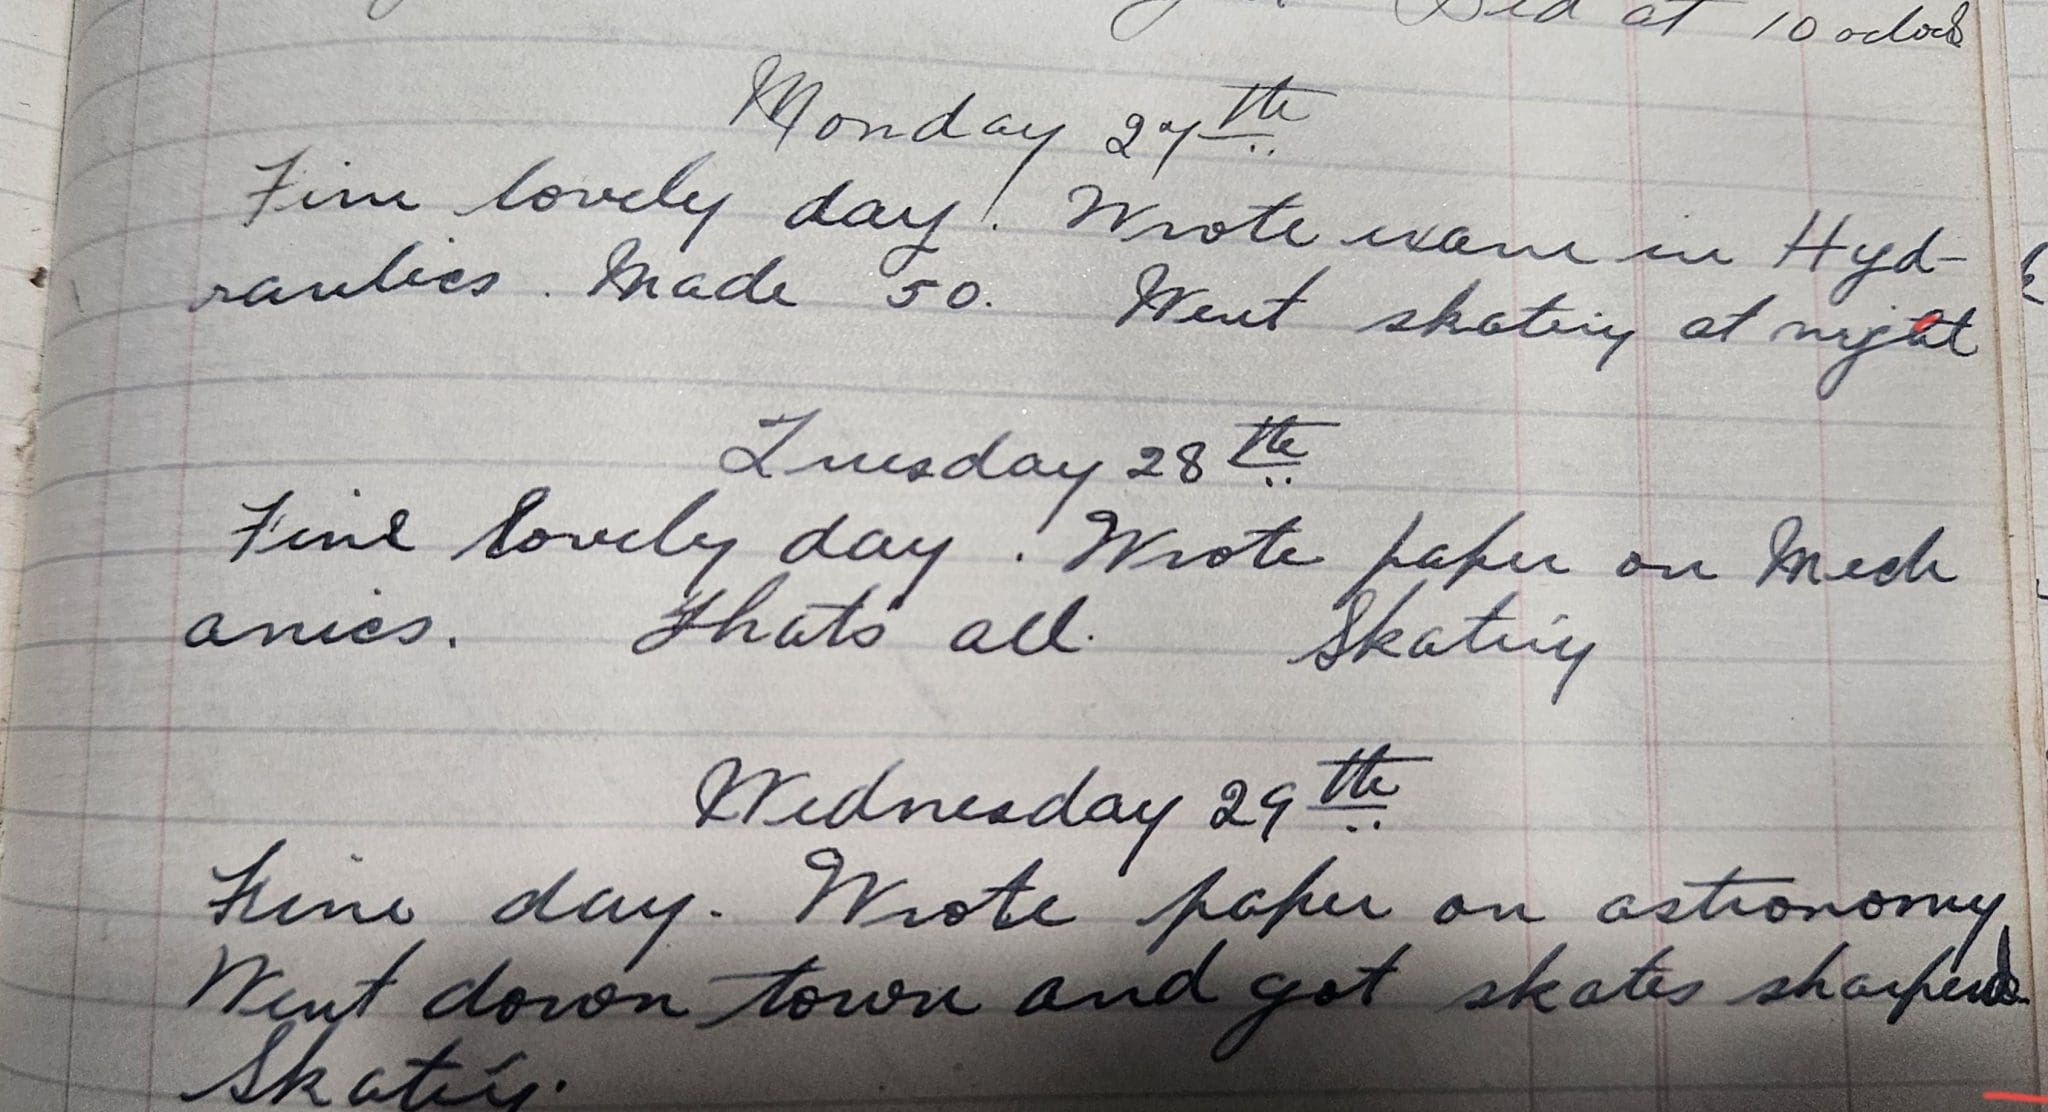 Bed at 10 oclock
Monday 27th
Fine lovely day. Wrote exam in Hyd-
raulics. Made 50. Went skating at night
Tuesday 28th
Fine lovely day. Wrote paper on Mech
anics. Thats all. Skating
Wednesday 29th
Fine day. Wrote paper on astronomy
Went down town and got skates sharpend.
Skating.